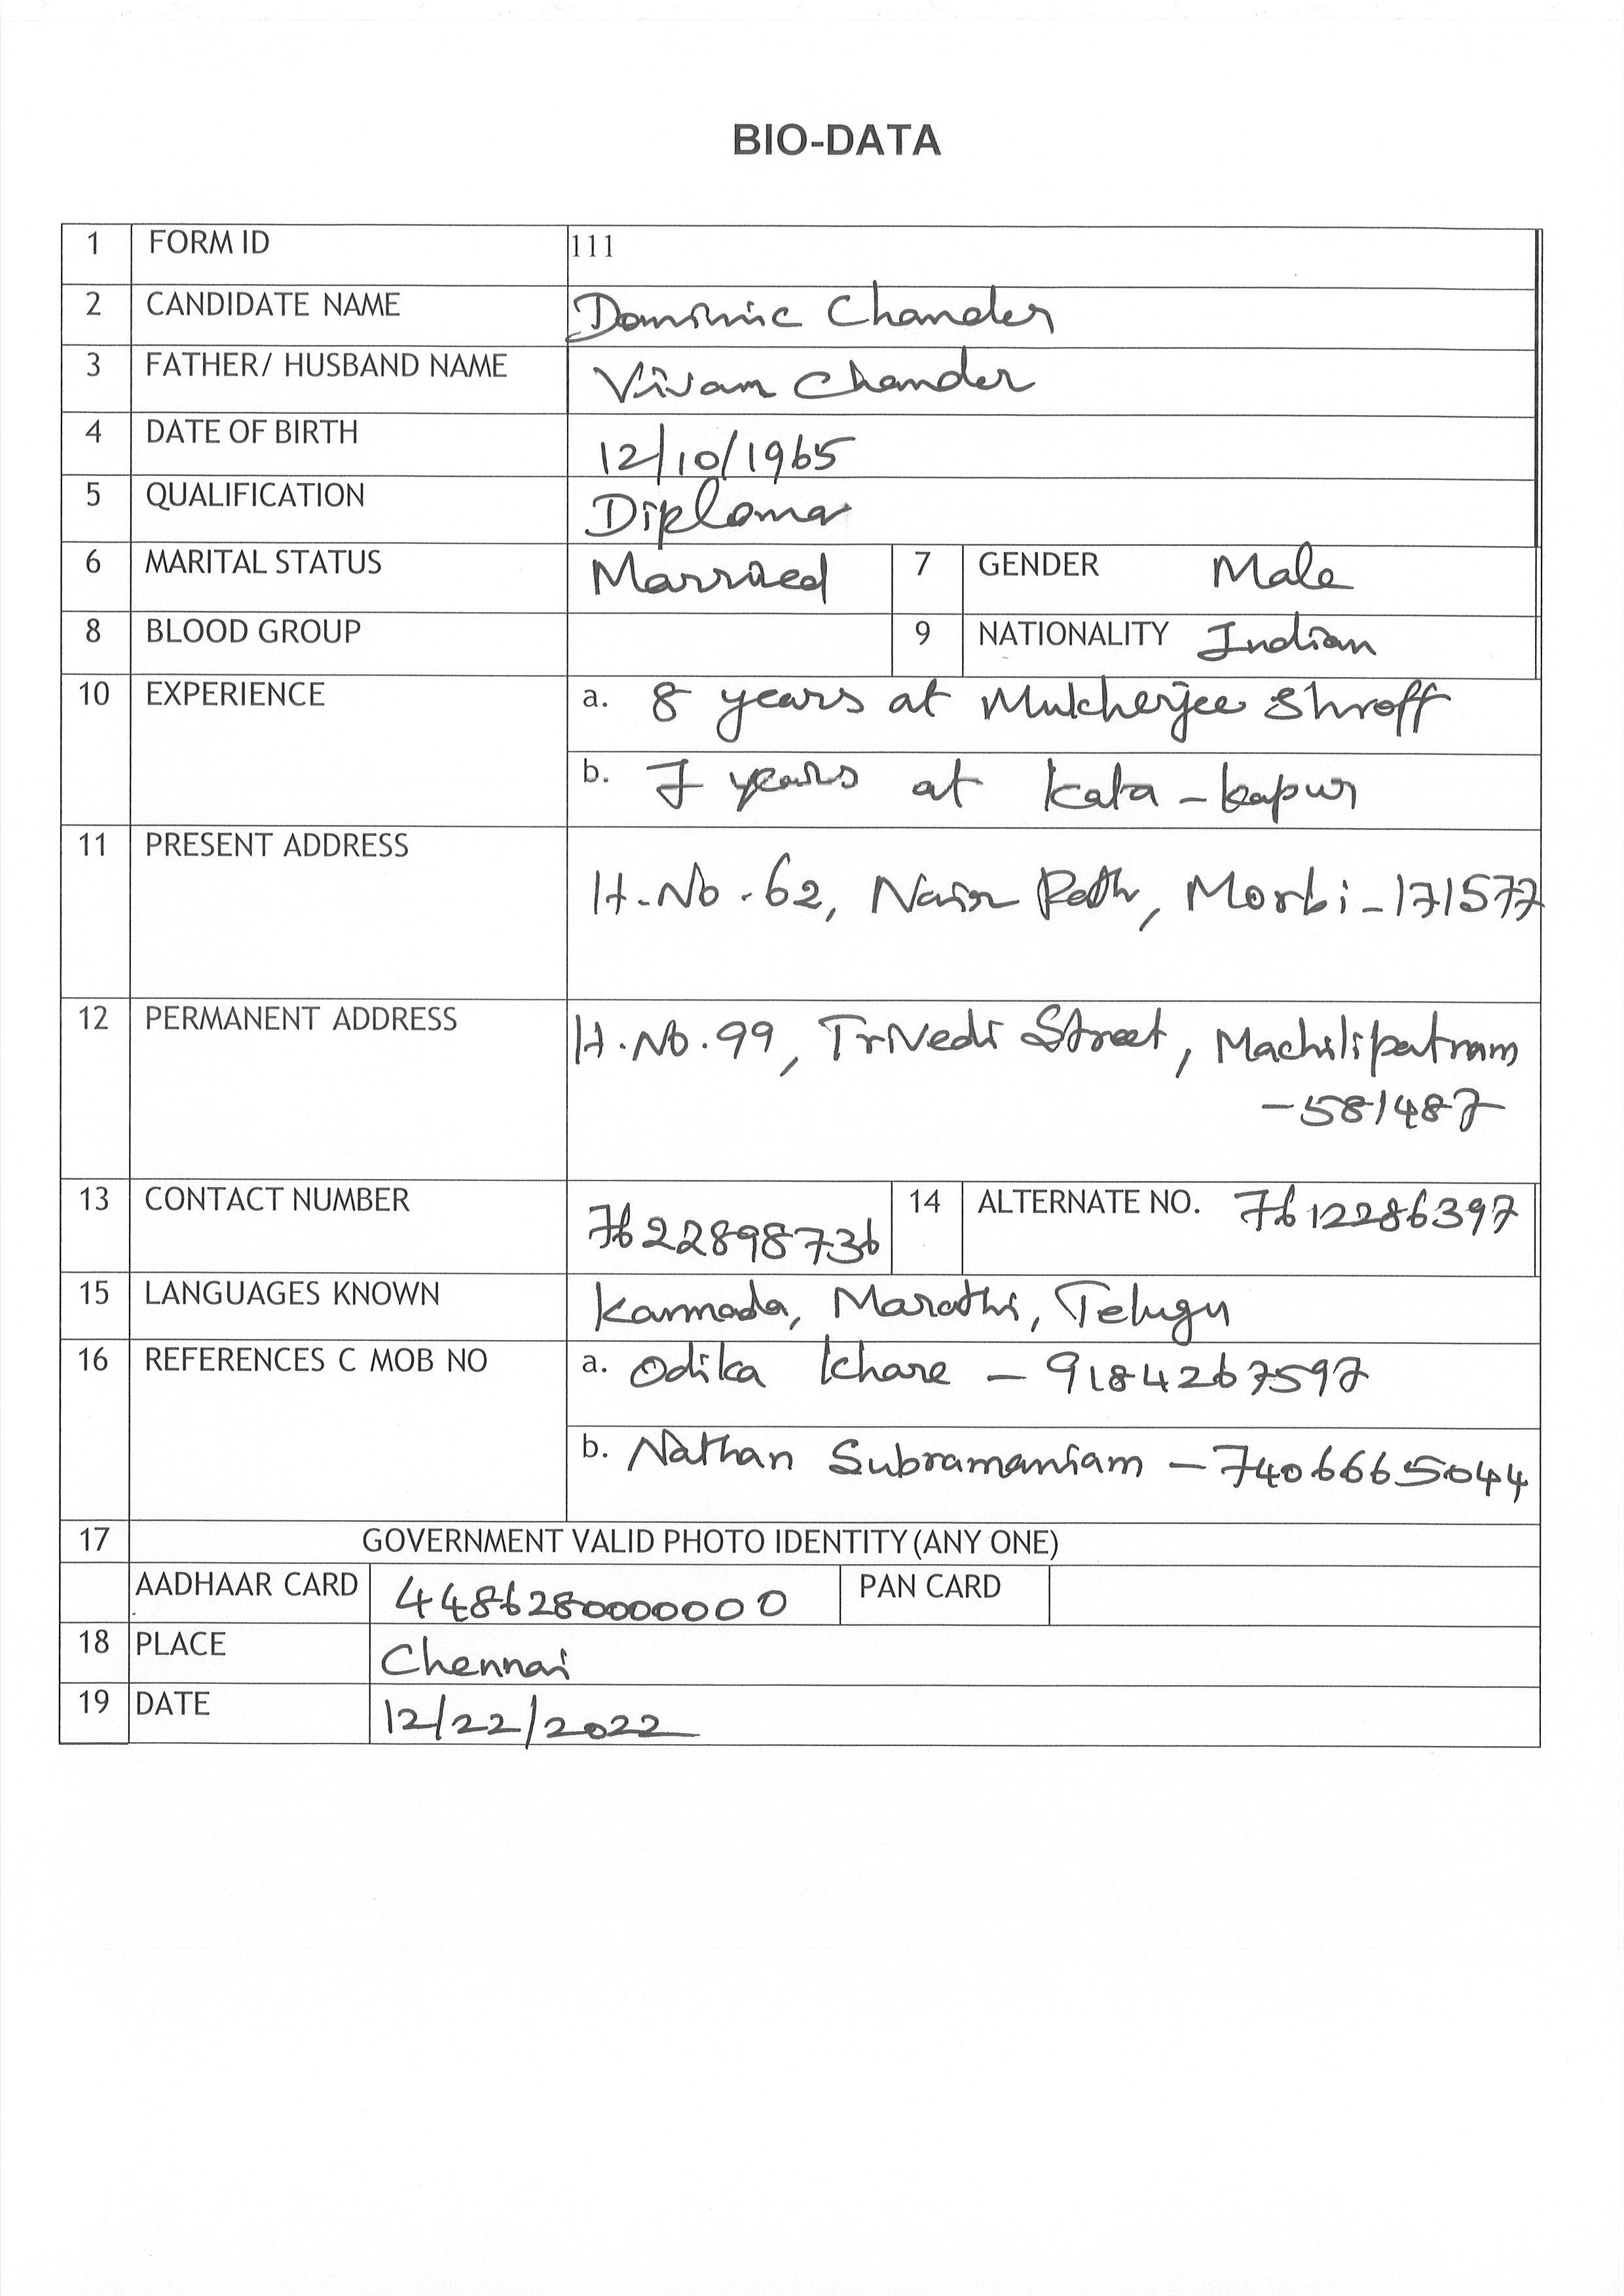 BIO-DATA
1 FORM ID 111
2 CANDIDATE NAME Dominic Chander
3 FATHER/ HUSBAND NAME Vivan Chander
4 DATE OF BIRTH 12/10/1965
5 QUALIFICATION Diploma
6 MARITAL STATUS Married 7 GENDER Male
8 BLOOD GROUP 9 NATIONALITY Indian
10 EXPERIENCE a. 8 years at Mukherjee Shroff
b. 7 years at Kata-Kapur
11 PRESENT ADDRESS
H.No.62, Nair Path, Morbi-171577
12 PERMANENT ADDRESS H.No.99, Trivedi Street, Machilipatnam
-581487
13 CONTACT NUMBER 7622898736 14 ALTERNATE NO. 7612286397
15 LANGUAGES KNOWN Kannada, Marathi, Telugu
16 REFERENCES C MOB NO a. Odika Khare - 9184267597
b. Nathan Subramaniam - 7406665044
17 GOVERNMENT VALID PHOTO IDENTITY (ANY ONE)
AADHAAR CARD 448628000000 PAN CARD
18 PLACE Chennai
19 DATE 12/22/2022